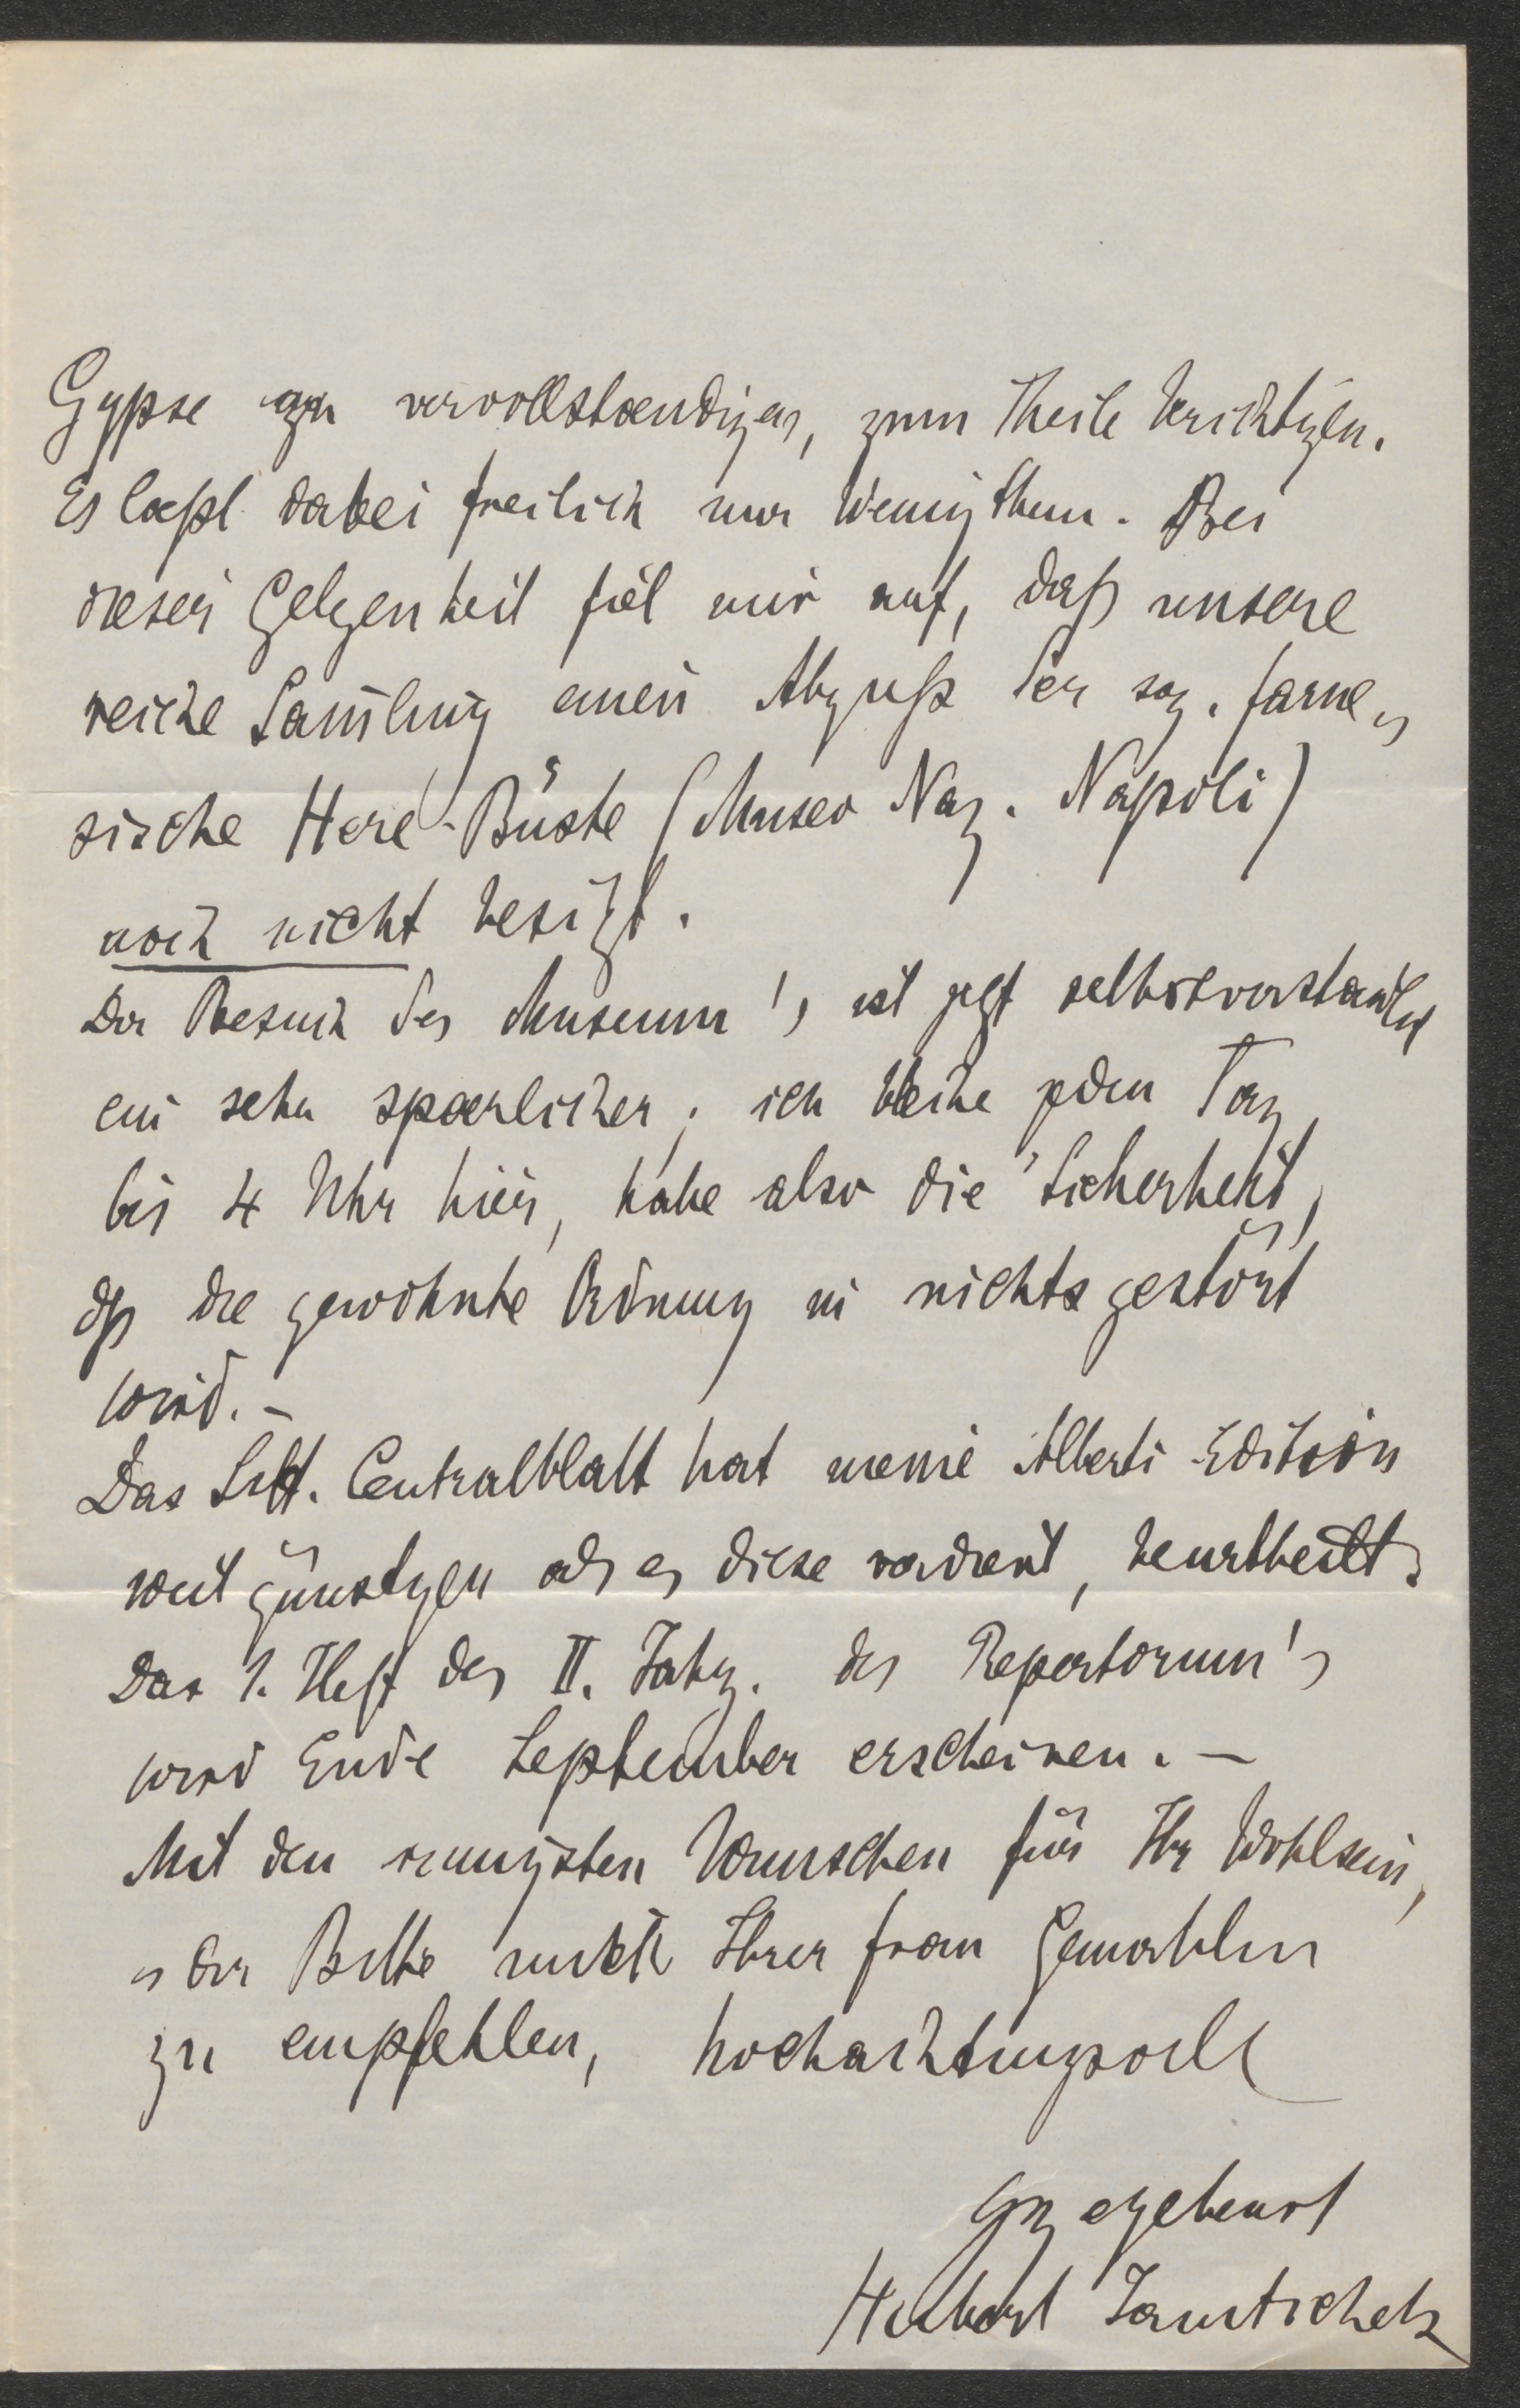 Gypse zu vervollstaendigen, zum Theile berichtigen.
Es laeßt dabei freilich nur Wenig thun. Bei
dieser Gelegenheit fiel mir auf, daß unsere
reiche Samlung einen Abguß der sog. farne„
sische Here-Büste (Museo Naz. Napoli)
noch nicht besitzt.
Der Besuch des Museum's ist jetzt selbstverstaendlich
ein sehr spaerlicher; ich bleibe jeden Tag
bis 4 Uhr hier, habe also die Sicherheit,
dß die gewohnte Ordnung in nichts gestört
wird. –
Das Litt. Centralblatt hat meine Alberti-Edition
weit günstiger als es diese verdient, beurtheilt.
Das 1. Heft des II. Jahrg. des Repertorium's
wird Ende September erscheinen. –
Mit den innigsten Wünschen für Ihr Wohlsein,
u der Bitte mich Ihrer Frau Gemahlin
zu empfehlen, hochachtungsvoll
Gz ergebenst
Hubert Janitschek